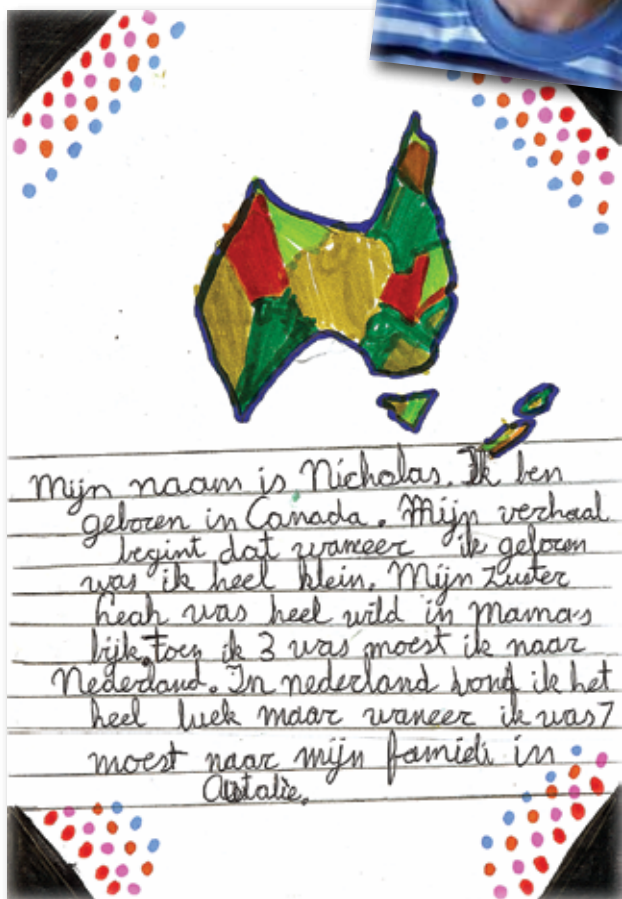 Mijn naam is Nicholas. Ik ben
geboren in Canada. Mijn verhaal
begint dat waneer ik geboren
was ik heel klein. Mijn zuster
Leah was heel wild in Mama's
bijk. toen ik 3 was moest ik naar
Nederland. In nederland vond ik het
heel luek maar waneer ik was 7
moest naar mijn famieli in
Austalie.